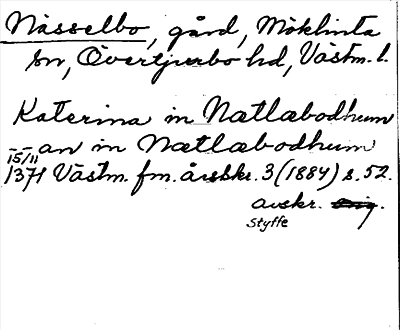 Nässelbo, gård, Möklinta
sn, Övertjurbo hd, Västm. l.
Katerina in Nætlæbodhum
-- an in Nætlæbodhum
15/11
1371 Västm. fm. årsskr. 3 (1884) s. 52.
avskr. orig.
Styffe